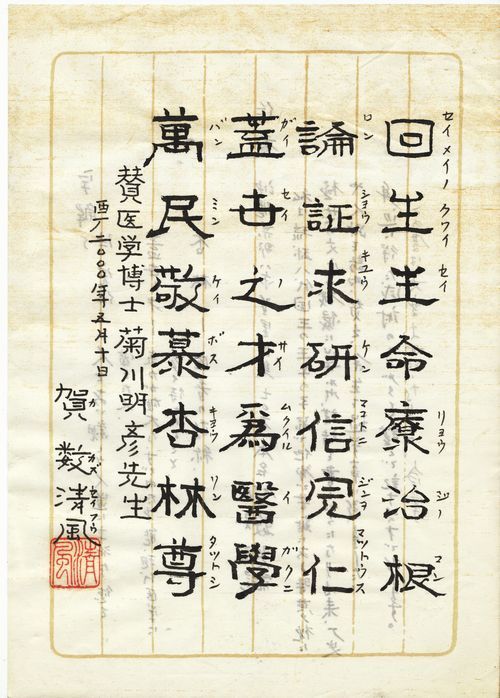 回生生命療治根
セイメイノ クワイ セイ リョウ ジノ マン
論証求研信完仁
ロン ショウ キユウ ケン マコトニ ジンヲ マツトウス
蓋世之才爲醫學
ガイ セイ ノ サイ ムクイル イ ガクニ
萬民敬慕杏林尊
バン ミン ケイ ボス キヨウ リン タツトシ
賛医学博士菊川明彦先生
西厂二〇〇〇年五月十日
賀数清風
カ カズ セイフウ
清風